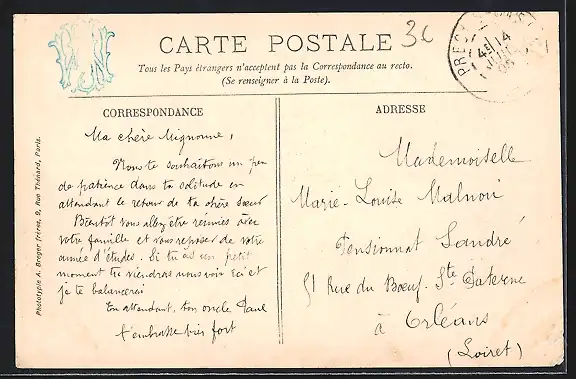 CARTE POSTALE
3c
Tous les Pays étrangers n'acceptent pas la Correspondance au recto.
(Se renseigner à la Poste).
CORRESPONDANCE
Ma chère Mignonne,
Nous te souhaitons un peu
de patience dans ta solitude en
attendant le retour de ta chère sœur
Bientôt vous allez être réunies avec
votre famille et vous reposer de votre
année d'études. Si tu as un petit
moment tu viendras nous voir ici et
je te balancerai
En attendant, ton oncle Paul
t'embrasse bien fort
ADRESSE
Mademoiselle
Marie-Louise Malnou
Pensionnat Landré
51 Rue du Bœuf-Ste Paterne
à Orléans
(Loiret)
Phototypie A. Breger frères, 9, Rue Thénard, Paris.
14
JUIL